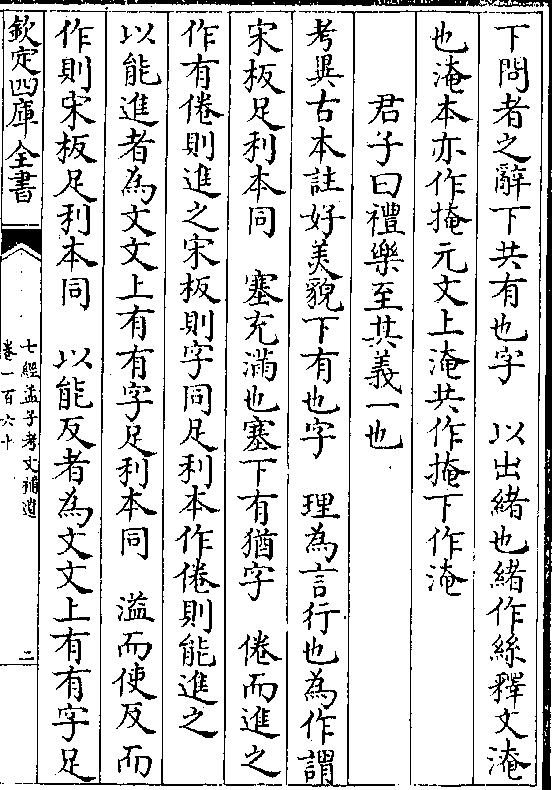 下問者之辭下共有也字　以出緒也緒作絲釋文淹
也淹本亦作掩元文上淹共作掩下作淹
君子曰禮樂至其義一也
考異古本註好美貌下有也字　理為言行也為作謂
宋板足利本同　塞充滿也塞下有猶字　倦而進之
作有倦則進之宋板則字同足利本作倦則能進之
以能進者為文文上有有字足利本同　溢而使反而
作則宋板足利本同　以能反者為文文上有有字足
欽定四庫全書
七經孟子考文補遺
卷一百六十
二